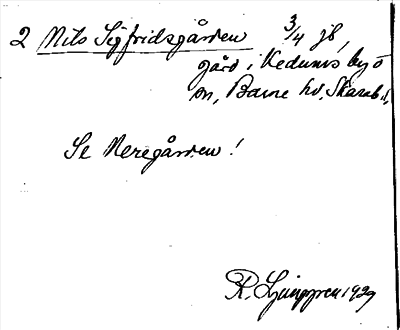 2 Nils Sigfridsgården 3/4 jb,
gård i Kedums by o
sn, Barne hd, Skarab.l,
Se Neregården!
R. Ljunggren 1929